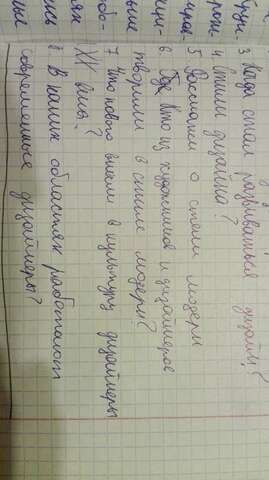 3 Когда стал развиваться дизайн?
4 Стили дизайна?
5 Расскажи о стели модерн
6 Кто из художников и дизайнеров
творили в стиле модерн?
7 Что нового внесли в культуру дизайнеры
XX века?
8 В каких областях работают
современные дизайнеры?